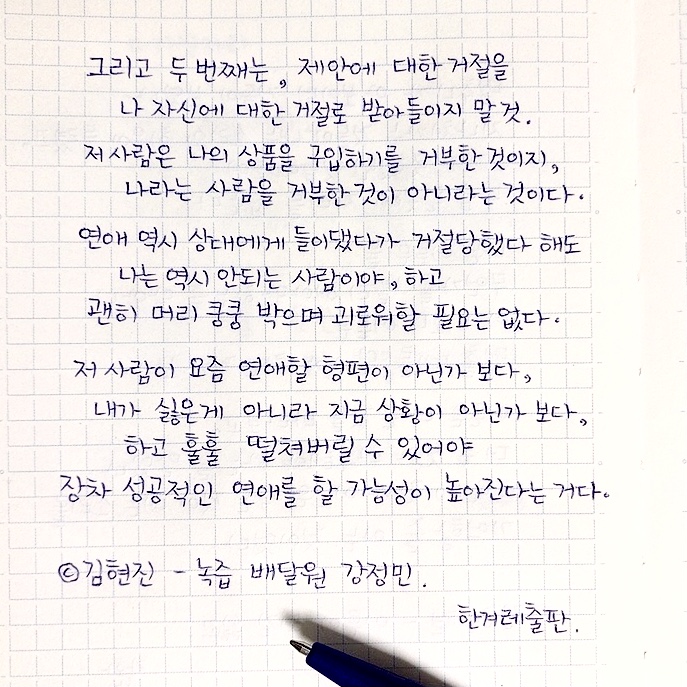 그리고 두 번째는, 제안에 대한 거절을
나 자신에 대한 거절로 받아들이지 말 것.
저 사람은 나의 상품을 구입하기를 거부한 것이지,
나라는 사람을 거부한 것이 아니라는 것이다.
연애 역시 상대에게 들이댔다가 거절당했다 해도
나는 역시 안되는 사람이야, 하고
괜히 머리 쿵쿵 박으며 괴로워할 필요는 없다.
저 사람이 요즘 연애할 형편이 아닌가 보다,
내가 싫은게 아니라 지금 상황이 아닌가 보다,
하고 훌훌 떨쳐버릴 수 있어야
장차 성공적인 연애를 할 가능성이 높아진다는 거다.
©김현진 - 녹즙 배달원 강정민.
한겨레출판.